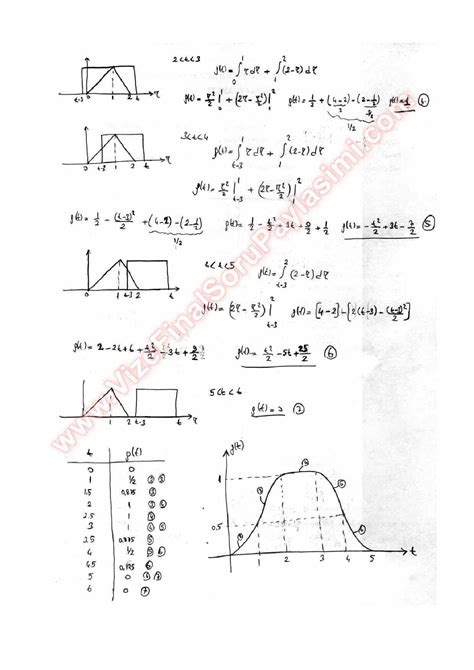 2<t<3
g(t)=∫₀¹ τdτ + ∫₁² (2-τ)dτ
t-3 0 1 2 t τ
g(t)=τ²/2 |₀¹ + (2τ-τ²/2)|₁² g(t)=1/2+(4-2)-(2-1/2) g(t)=1
1/2
3<t<4
g(t)=∫_{t-3}^1 τdτ + ∫₁² (2-τ)dτ
0 t-3 1 2 t τ
g(t)=τ²/2 |_{t-3}^1 + (2τ-τ²/2)|₁²
g(t)=1/2-(t-3)²/2+(4-2)-(2-1/2) g(t)=1/2-t²/2+3t-9/2+1/2 g(t)=-t²/2+3t-7/2 (5)
1/2
4<t<5
g(t)=∫_{t-3}^2 (2-τ)dτ
0 1 t-3 2 t
g(t)=(2τ-τ²/2)|_{t-3}^2 g(t)=[4-2]-[2(t-3)-(t-3)²/2]
g(t)=2-2t+6+t²/2-3t+9/2 g(t)=t²/2-5t+25/2 (6)
5<t<6
0 1 2 t-3 t τ
g(t)=0 (7)
t g(t)
0 0
1 1/2
1.5 0,875
2 1
2.5 1
3 1
3.5 0,875 (5)
4 1/2 (5) (6)
4.5 0,125 (6)
5 0
6 0 (7)
g(t)
1
0.5
1 2 3 4 5 t
www.VizeFinalSoruPaylasimi.com